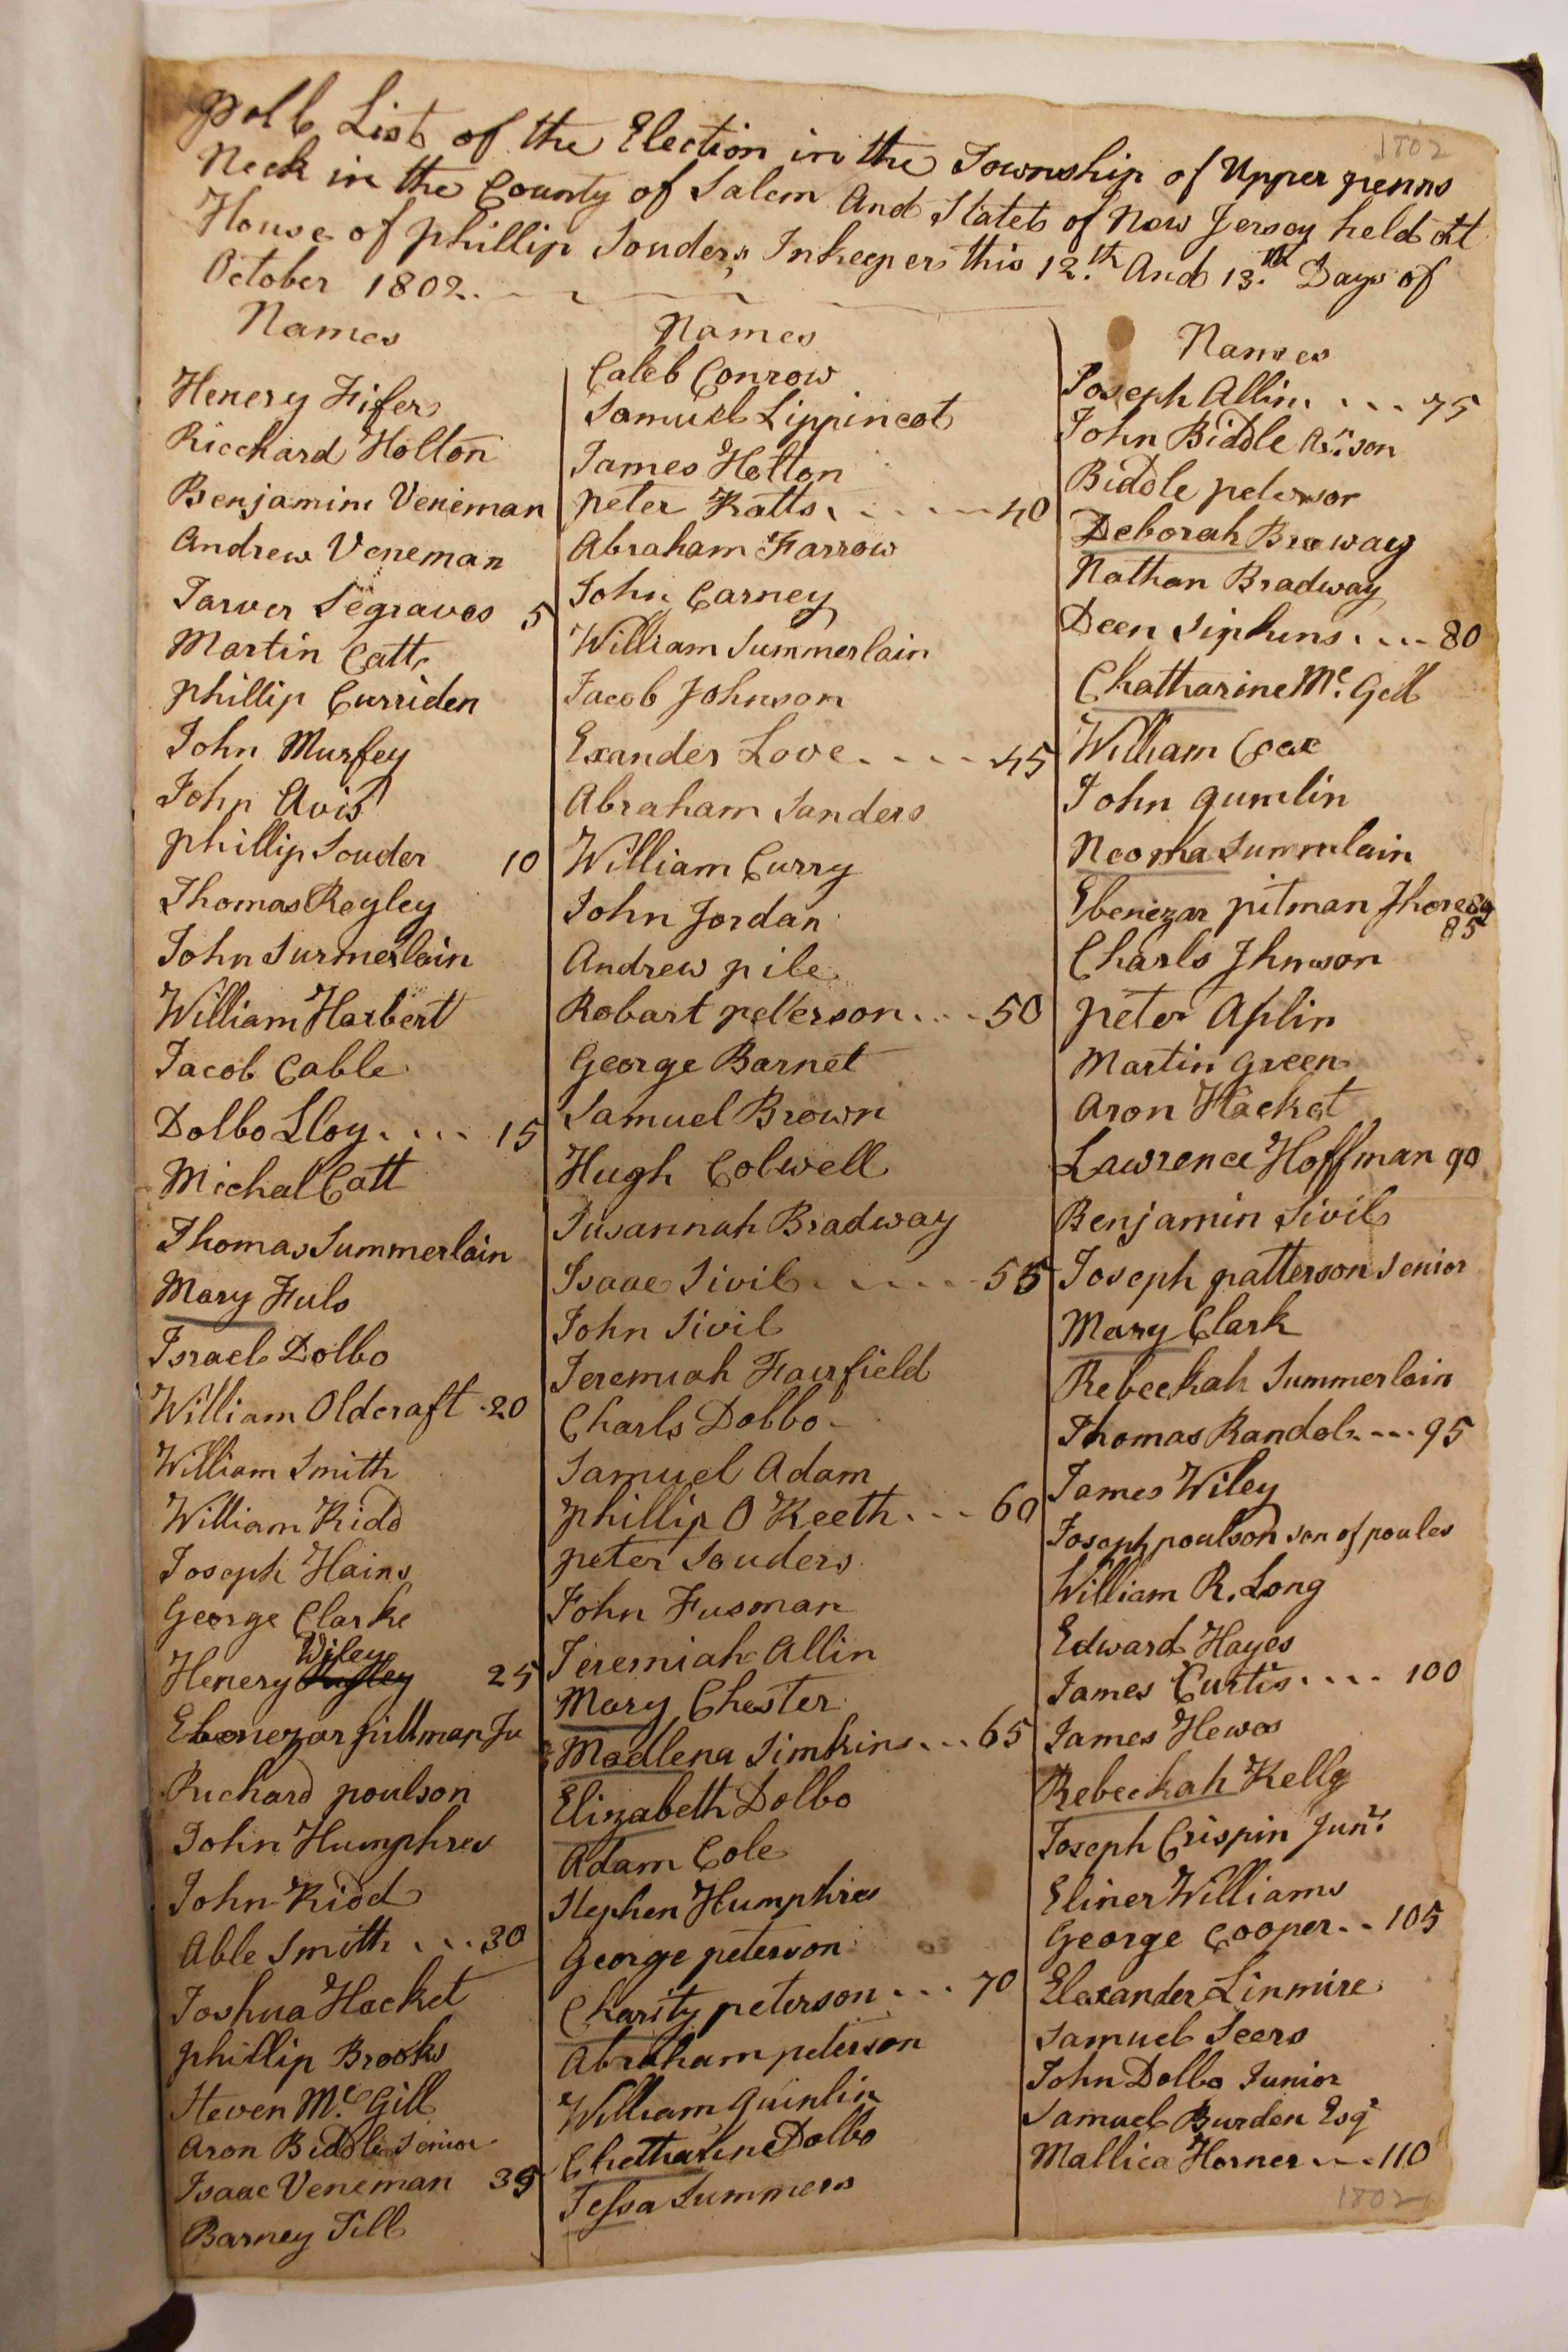 1802
Poll List of the Election in the Township of Upper penns
Neck in the County of Salem And State of New Jersey held At
House of phillip Souders Inkeeper this 12th And 13th Days of
October 1802.
Names
Henery Fifer
Ricchard Holton
Benjamin Veneman
Andrew Veneman
Tarver Segraves 5
Martin Catt
phillip Curriden
John Murfey
John Avis
phillip Souder 10
Thomas Regley
John Surmerlain
William Harbert
Jacob Cable
Dolbo Lloy .... 15
Michal Catt
Thomas Summerlain
Mary Fuls
Israel Dolbo
William Oldcraft .20
William Smith
William Kidd
Joseph Hains
George Clarke
Wiley
Henery 25
Ebenezar pittman Ju
Richard poulson
John Humphres
John Kidd
Able Smith ... 30
Joshua Hacket
phillip Brooks
Steven Mc. Gill
Aron Biddle Senior
Isaac Veneman 35
Barney Till
Names
Caleb Conrow
Samuel Lippincot
James Holton
peter Katts ..... 40
Abraham Farrow
John Carney
William Summerlain
Jacob Johnson
Exander Love .... 45
Abraham Sanders
William Curry
John Jordan
Andrew pile
Robart peterson ... 50
George Barnet
Samuel Brown
Hugh Colwell
Susannah Bradway
Isaac Sivil ..... 55
John Sivil
Jeremiah Fairfield
Charls Dolbo
Samuel Adam
phillip O Keeth ... 60
peter Souders
John Fusman
Jeremiah Allin
Mary Chester
Madlena Simkins ... 65
Elizabeth Dolbo
Adam Cole
Stephen Humphries
George peterson
Charity peterson ... 70
Abraham peterson
William Quinlin
Chatharine Dolbo
Jessa Summers
Names
Joseph Allin .... 75
John Biddle Arn. son
Biddle peterson
Deborah Braway
Nathan Bradway
Deen Siphins .... 80
Chatharine Mc. Gill
William Coax
John gumlin
Neoma Summlain
Ebenezar pitman
85
Charls Jhnson
peter Aplin
Martin Green
Aron Hacket
Lawrence Hoffman 90
Benjamin Sivil
Joseph patterson Senior
Mary Clark
Rebeckah Summerlain
Thomas Randol .... 95
James Wiley
Joseph poulson son of poules
William R. Long
Edward Hayes
James Curtis .... 100
James Hewes
Rebeckah Kelly
Joseph Crispin Junr.
Eliner Williams
George Cooper .. 105
Elexander Linmire
Samuel Seers
John Dolbo Junior
Samuel Burden Esqr
Mallica Horner ... 110
1802